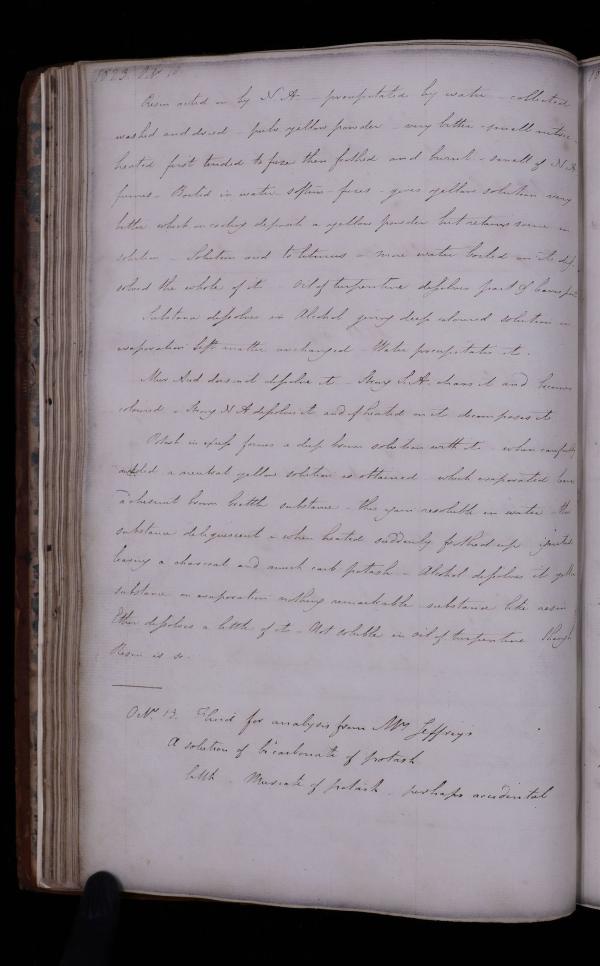 1823. Octr 10
Resin acted on by N A - precipitated by water - collected
washed and dried - pale yellow powder - very bitter - small
heated first tended to fuse then frothed and burnt - smell of N A
fumes - Boiled in water softens - fuses - gives yellow solution very
bitter which on cooling deposits a yellow powder but retains some in
solution - Solution acid to litmus - more water boiled on it
solved the whole of it - oil of turpentine dissolves part
Substance dissolves in Alcohol giving deep coloured solution on
evaporation left matter unchanged - Water precipitates it.
Mur Acid does not dissolve it - Strong S.A. chars it and becomes
coloured - Strong N A dissolves it and if heated on it decomposes it
Potash in excess forms a deep brown solution with it - when carefully
added a neutral yellow solution is obtained - which evaporated
adherent brown brittle substance - this again resoluble in water - the
substance deliquescent - when heated suddenly frothed up ignited
leaving a charcoal and much carb potash - Alcohol dissolves it
substance on evaporation nothing remarkable substance like resin
Ether dissolves a little of it - Not soluble in oil of turpentine though
Resin is so.
Octr. 13. Fluid for analysis from Mrs Jeffreys
A solution of bicarbonate of potash
little Muriate of potash - perhaps accidental